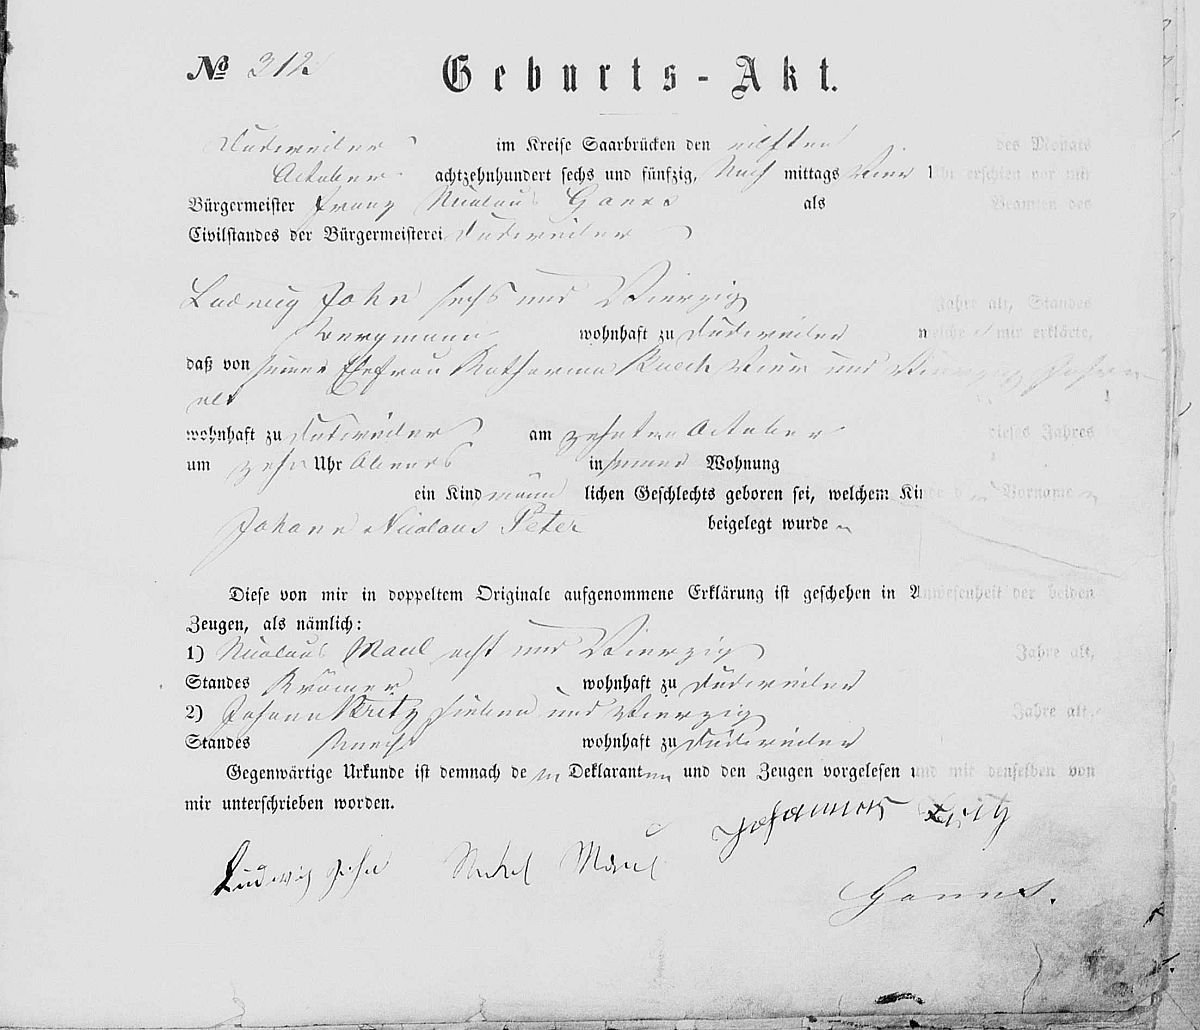 № 312 Geburts-Akt.
Dudweiler im Kreise Saarbrücken den eilften des Monats
October achtzehnhundert sechs und fünfzig, Nach mittags Vier Uhr erschien vor mir
Bürgermeister Franz Nicolaus als Beamten des
Civilstandes der Bürgermeisterei Dudweiler
Ludwig John sechs und Vierzig Jahre alt, Standes
Bergmann wohnhaft zu Dudweiler welche mir erklärte,
daß von seiner Ehefrau Katharina Vier und Vierzig Jahre
alt
wohnhaft zu Dudweiler am zehnten October dieses Jahres
um zehn Uhr Abends in seiner Wohnung
ein Kind männ lichen Geschlechts geboren sei, welchem Kinde d Vornamen
Johann Nicolaus Peter beigelegt wurden
Diese von mir in doppeltem Originale aufgenommene Erklärung ist geschehen in Anwesenheit der beiden
Zeugen, als nämlich:
1) Nicolaus Maul acht und Vierzig Jahre alt,
Standes Krämer wohnhaft zu Dudweiler
2) Johann Kritz sieben und Vierzig Jahre alt,
Standes wohnhaft zu Dudweiler
Gegenwärtige Urkunde ist demnach de m Deklaranten und den Zeugen vorgelesen und mit denselben von
mir unterschrieben worden.
Johannes
Ludwig John Nickel Maul